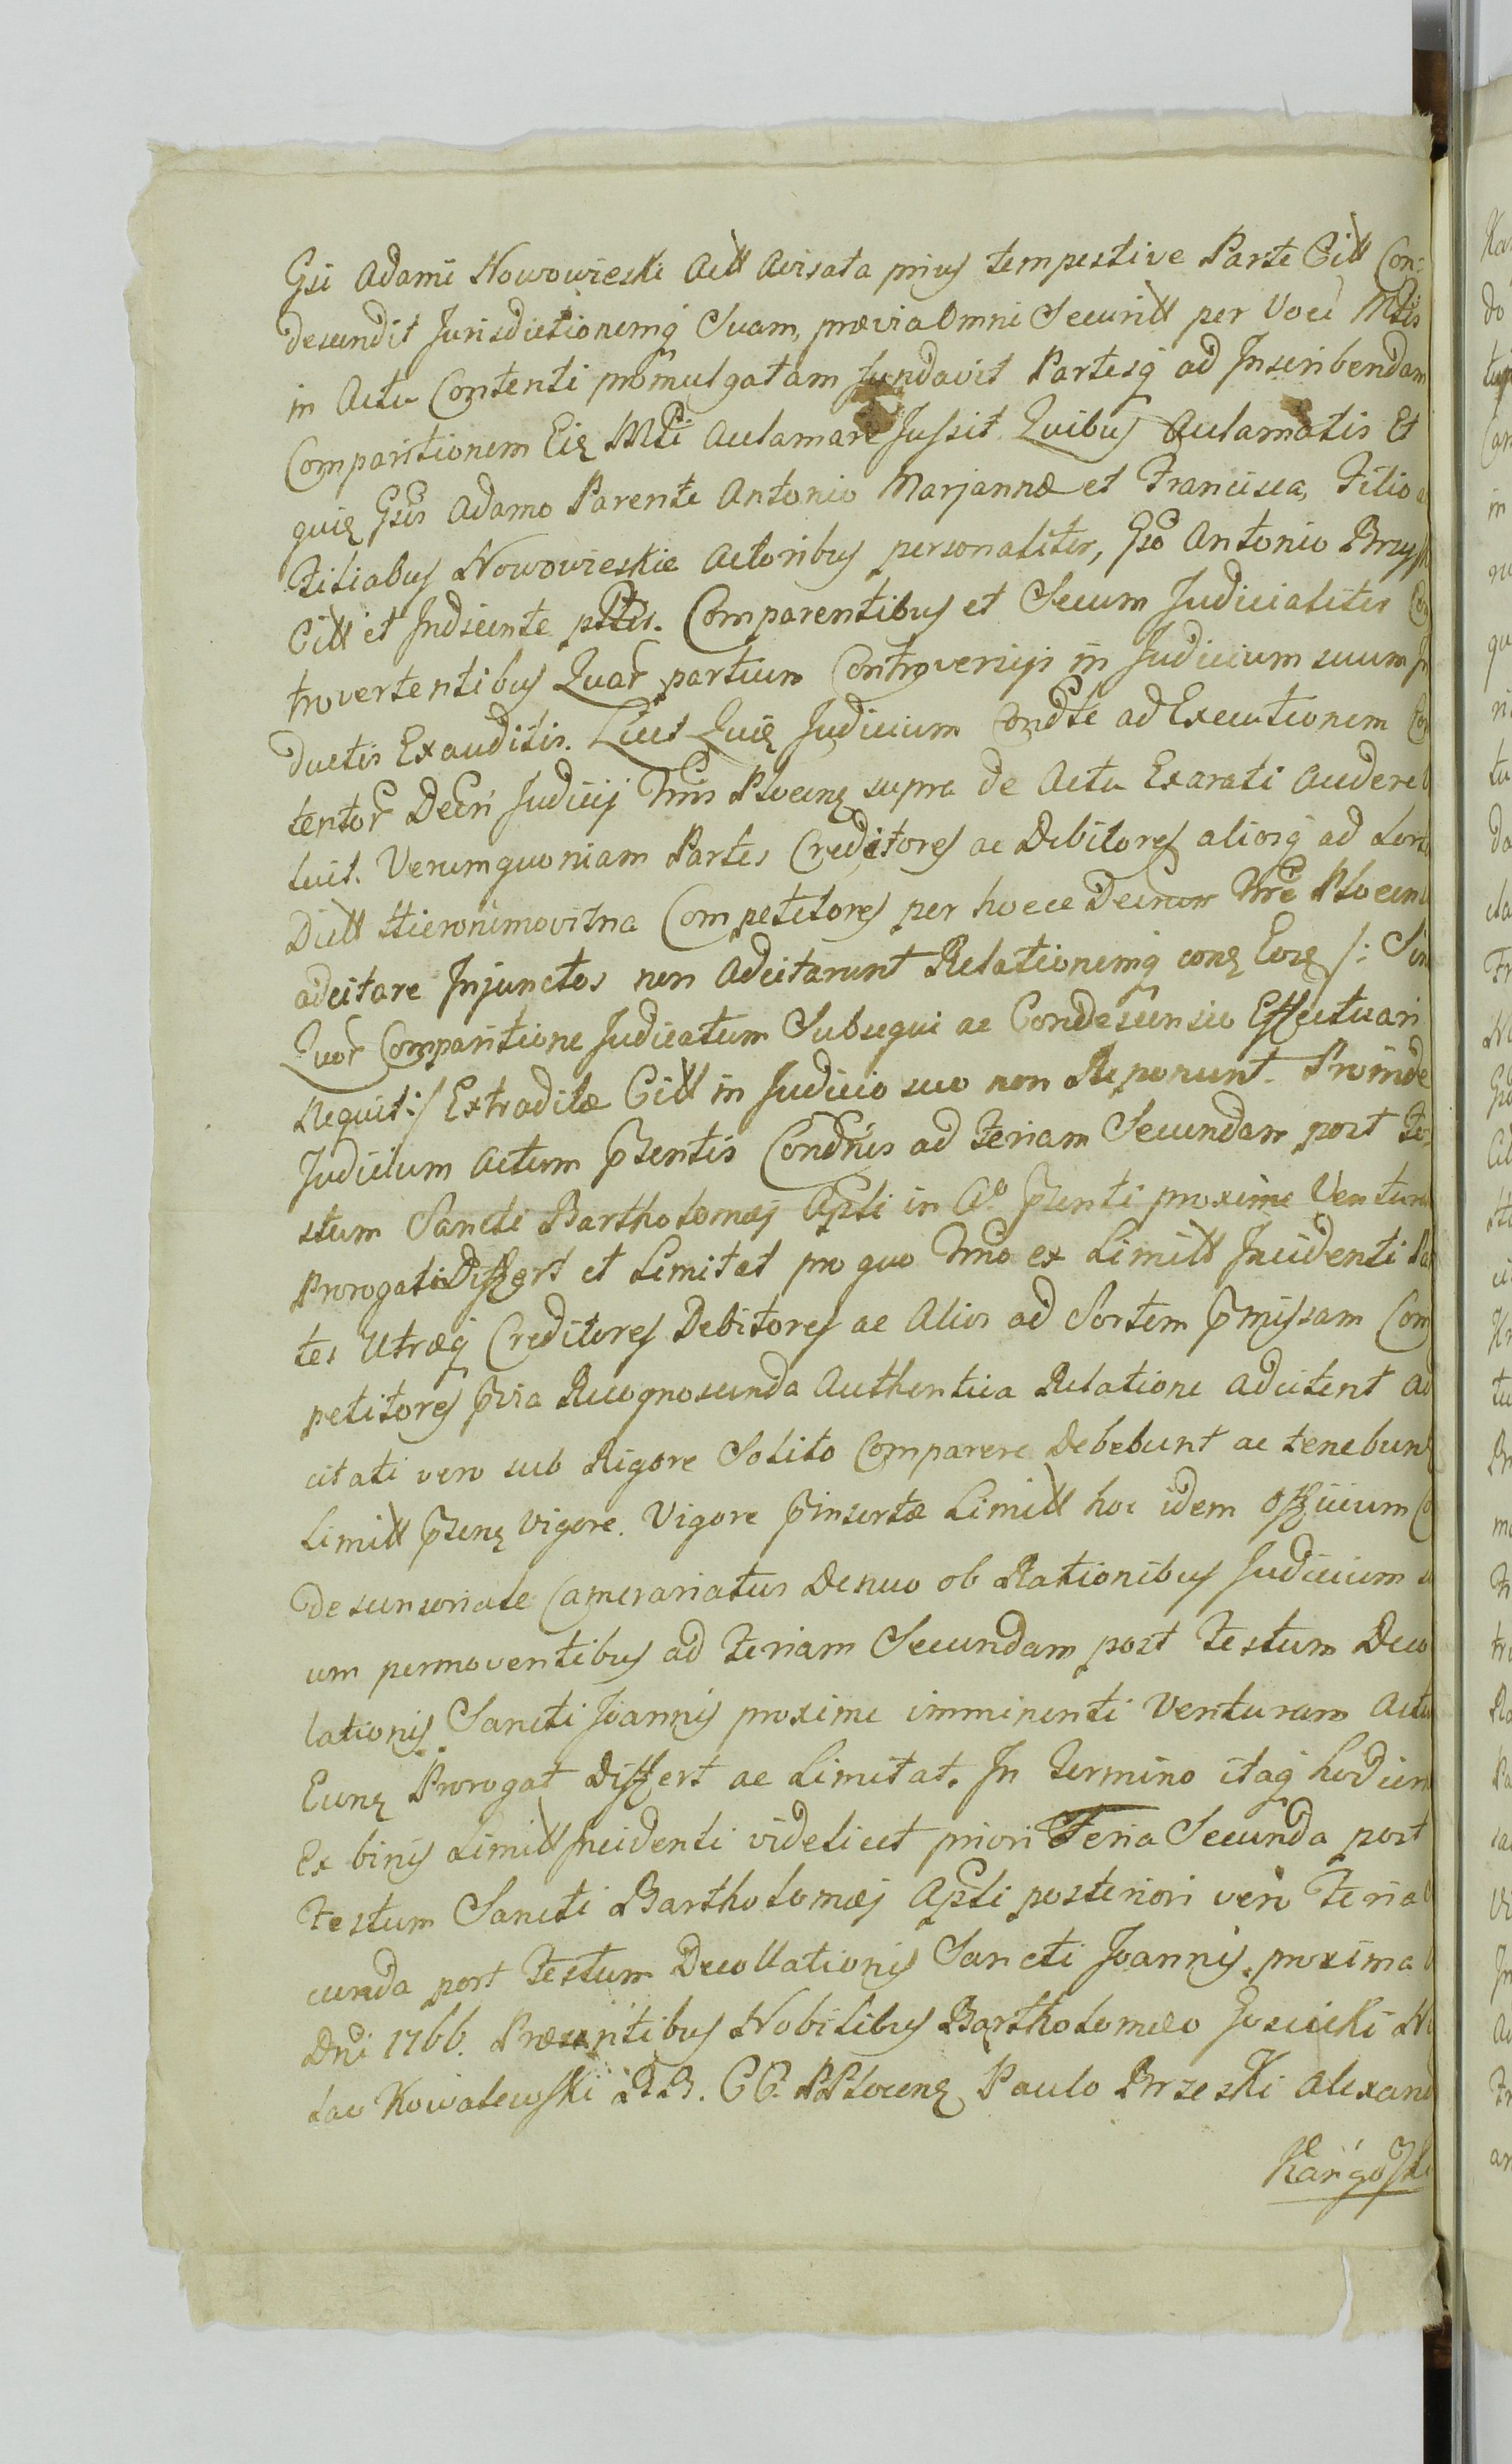 Gsi Adami Nowowieski Actt avisata prius tempestive Parte Citt Con-
descendit Jurisdictionemq Suam, prævia Omni Securitt per Voce Mtis
in Actu Contenti promulgatam fundavit Partesq ad Inscribendam
Comparitionem Eiq Mtti acclamare Jussit. Quibus acclamatis Et
quiq Gsis Adamo Parente Antonio Marjannæ et Francisca, Filio
Filiabus Nowowieskie Actoribus personaliter, Gso Antonio Brzys
Citt et Indicente ptter. Comparentibus et Secum Judicialiter Con
trovertentibus Quar partium Controversijs in Judicium suum In
ductis Exauditis. Licet Quiq Judicium Condte ad Executionem Con
tentor Decri Judicij Tris Plocenq supra de Actu Exarati Accdere
luit. Verum quoniam Partes Creditores ac Debitores aliosq ad Sort
Dictt Hieronimovitna Competitores per hocce Decrum Tre Plocen
adcitare Injunctos non Adcitarunt Relationemq conq Eorq /: Sin
Quor Comparitione Judicatum Subsequi ac Condescensio Effectuari
Nequit :/ Extraditæ Citt in Judicio suo non Reponunt. Proinde
Judicium Actum Pzentis Condnis ad Feriam Secundam post Fe-
stum Sancti Bartholomæj Apli in Ao Pzenti proxime Ventura
Prorogat Differt et Limitat pro quo Tmno ex Limitt Incidenti Par
tes Utræq Creditores Debitores ac Alios ad Sortem Pmissam Com
petitores Pvia Recognoscenda Authentica Relatione adcitent Ad
citati vero sub Rigore Solito Comparere Debebunt ac tenebunt
Limitt Pzenq Vigore. Vigore Pinsertæ Limitt hoc idem Officium Co
Descensoriale Camerariatus Denuo ob Rationibus Judicium
um permoventibus ad Feriam Secundam post Festum Deco
lationis Sancti Joannis proxime imminenti Venturam Actu
Eunq Prorogat Differt ac Limitat. In Termino itaq hodiern
Ex binis Limitt Incidenti videlicet priori Feria Secunda post
Festum Sancti Bartholomæj Apli posteriori vero Feria
cunda post Festum Decollationis Sancti Joannis proxima
Dni 1766. Præsentibus Nobilibus Bartholomæo Joscicki
lao Kowalewski B.B. CC. PPlocenq Paulo Brzeski Alexand
Kargoski